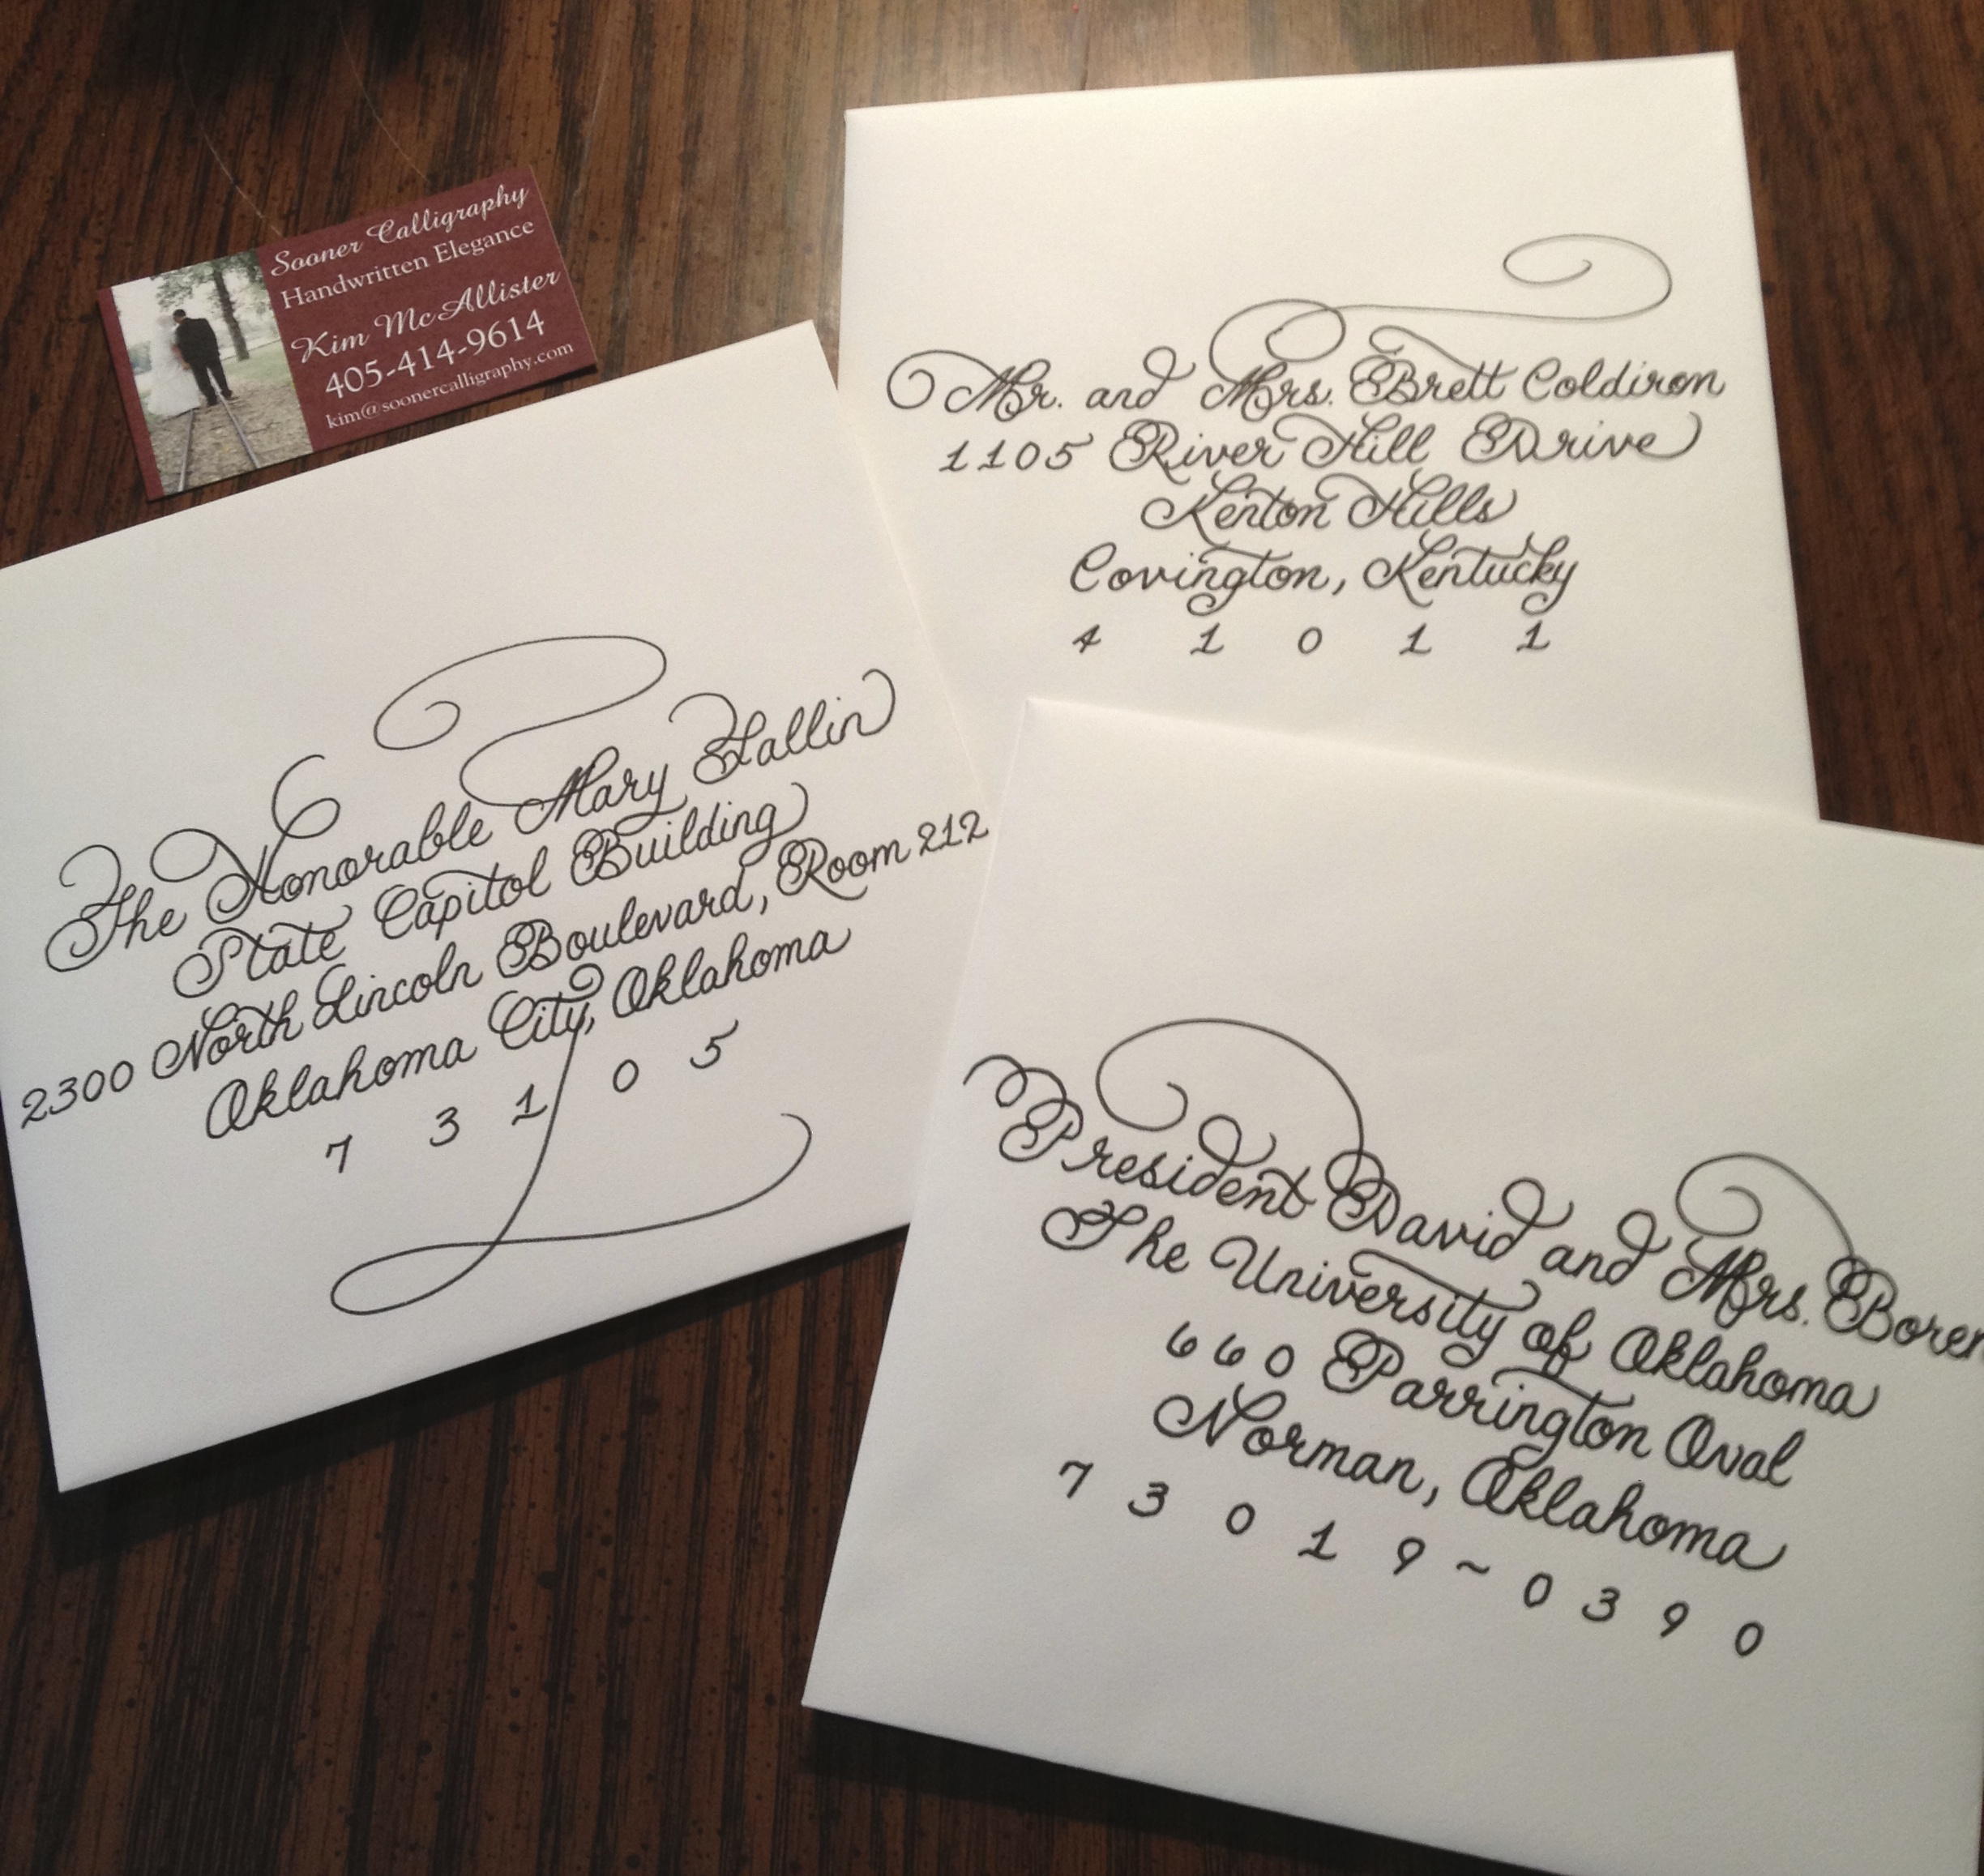 Sooner Calligraphy
Handwritten Elegance
Kim McAllister
405-414-9614
kim@soonercalligraphy.com
Mr. and Mrs. Brett Coldiron
1105 River Hill Drive
Kenton Hills
Covington, Kentucky
4 1 0 1 1
The Honorable Mary Fallin
State Capitol Building
2300 North Lincoln Boulevard, Room 212
Oklahoma City, Oklahoma
7 3 1 0 5
President David and Mrs. Boren
The University of Oklahoma
660 Parrington Oval
Norman, Oklahoma
7 3 0 1 9 ~ 0 3 9 0